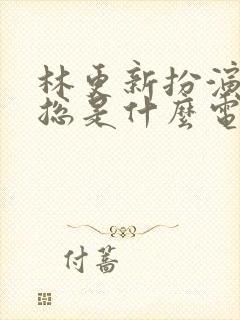 林更新扮演
总是什麼電
付蔷